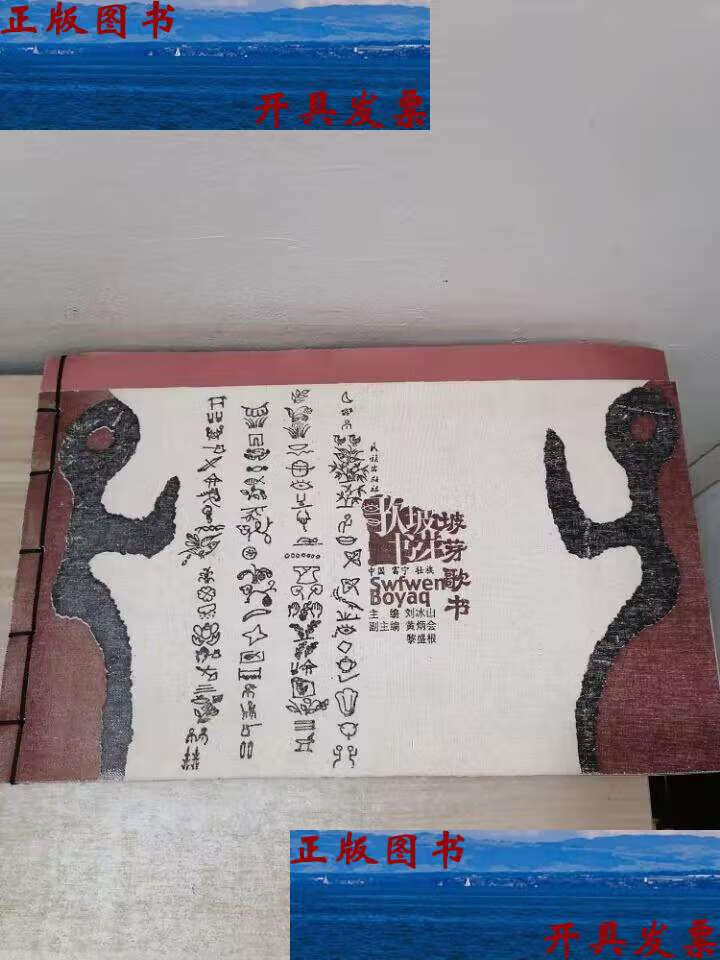 正版图书
开具发票
民族出版社
坡芽歌书
中国 富宁 壮族
Swfwen
Boyaq
主 编 刘冰山
副主编 黄炳会
黎盛根
正版图书
开具发票